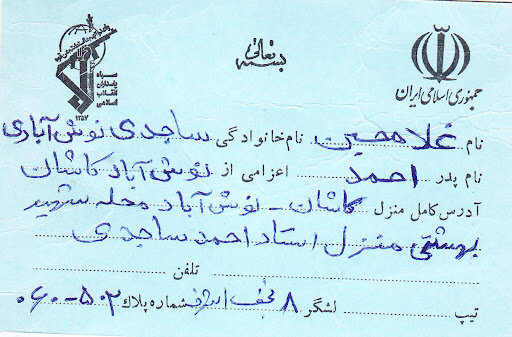 بسمه تعالی
جمهوری اسلامی ایران
سپاه پاسداران انقلاب اسلامی
۱۳۵۷
نام غلامحسین نام خانوادگی ساجدی نوش آبادی
نام پدر احمد اعزامی از نوش آباد کاشان
آدرس کامل منزل کاشان - نوش آباد محله شهید
بهشتی منزل استاد احمد ساجدی
تلفن
تیپ لشگر ۸ نجف اشرف شماره پلاک ۵۰۲-۰۶۰